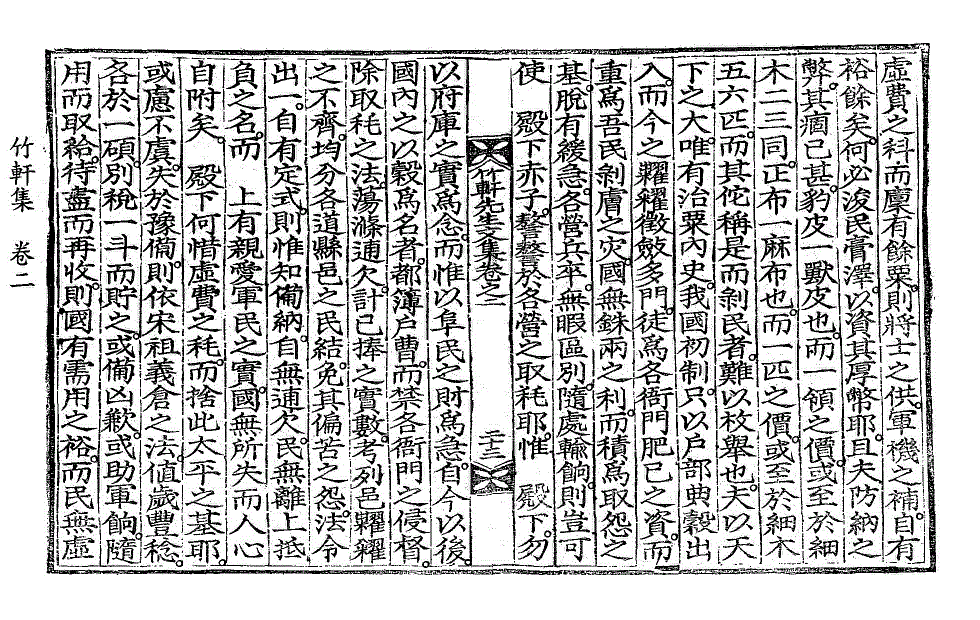 虛費之科而廩有餘粟則將士之供軍機之補自有
裕餘矣何必浚民膏澤以資其厚幣耶且夫防納之
弊其痼已甚豹皮一獸皮也而一領之價或至於細
木二三同正布一麻布也而一匹之價或至於細木
五六匹而其佗稱是而剝民者難以枚舉也夫以天
下之大唯有治粟內史我國初制只以戶部典穀出
入而今之糶糴徵斂多門徒爲各衙門肥己之資而
重爲吾民剝膚之灾國無銖兩之利而積爲取怨之
基脫有緩急各營兵卒無暇區別隨處輸餉則豈可
使 殿下赤子謷謷於各營之取耗耶惟 殿下勿
竹軒先生文集卷之二 二十三
以府庫之實爲念而惟以阜民之財爲急自今以後
國內之以穀爲名者都簿戶曹而禁各衙門之侵督
除取耗之法蕩滌逋欠計已捧之實數考列邑糶糴
之不齊均分各道縣邑之民結免其偏苦之怨法令
出一自有定式則惟知備納自無逋欠民無離上抵
負之名而 上有親愛軍民之實國無所失而人心
自附矣 殿下何惜虛費之耗而捨此太平之基耶
或慮不虞失於豫備則依宋祖義倉之法値歲豊稔
各於一碩別稅一斗而貯之或備凶歉或助軍餉隨
用而取給待盡而再收則國有需用之裕而民無虛
竹軒集 卷二